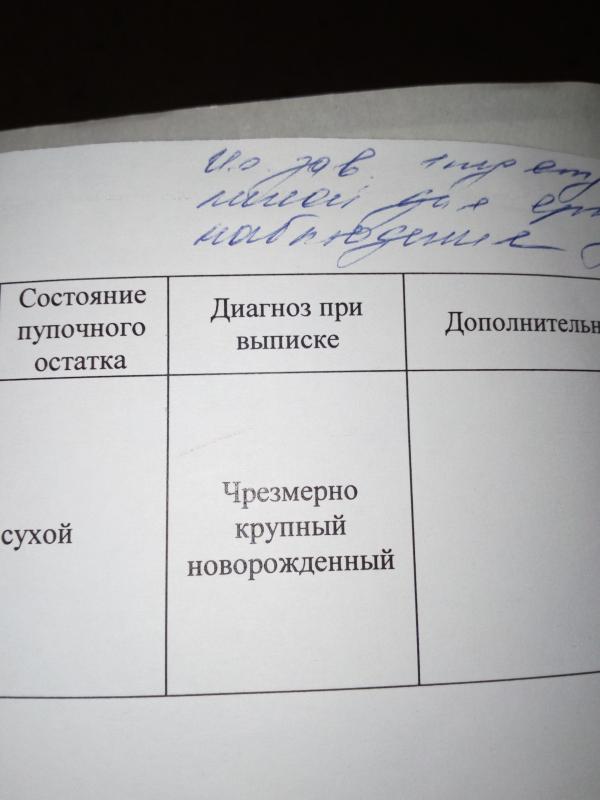 И.о. зав.
для
наблюдение
Состояние
пупочного
остатка
Диагноз при
выписке
Дополнительн
сухой
Чрезмерно
крупный
новорожденный